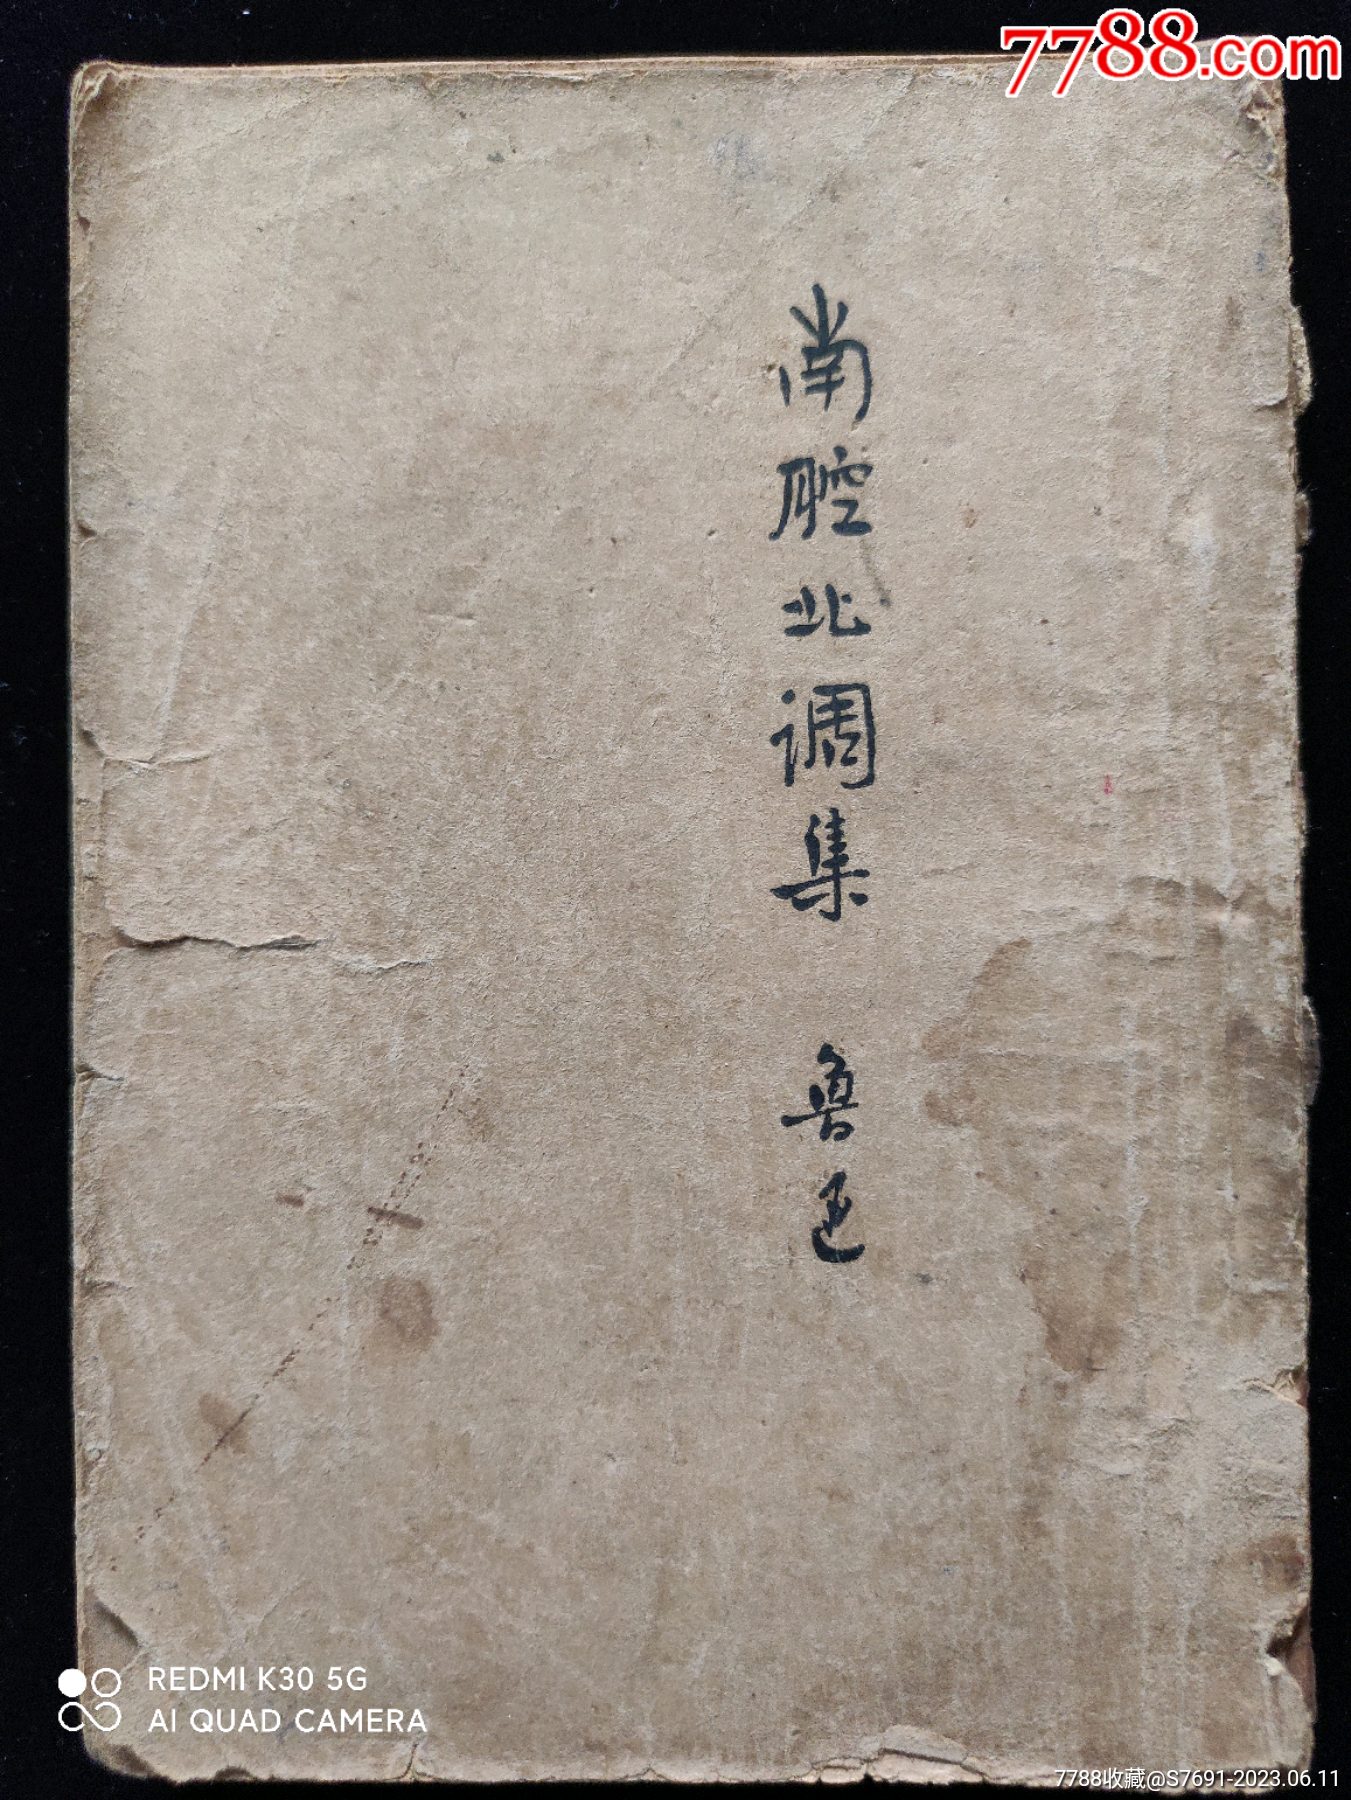 7788.com
南腔北调集 魯迅
REDMI K30 5G
AI QUAD CAMERA
7788收藏@S7691-2023.06.11